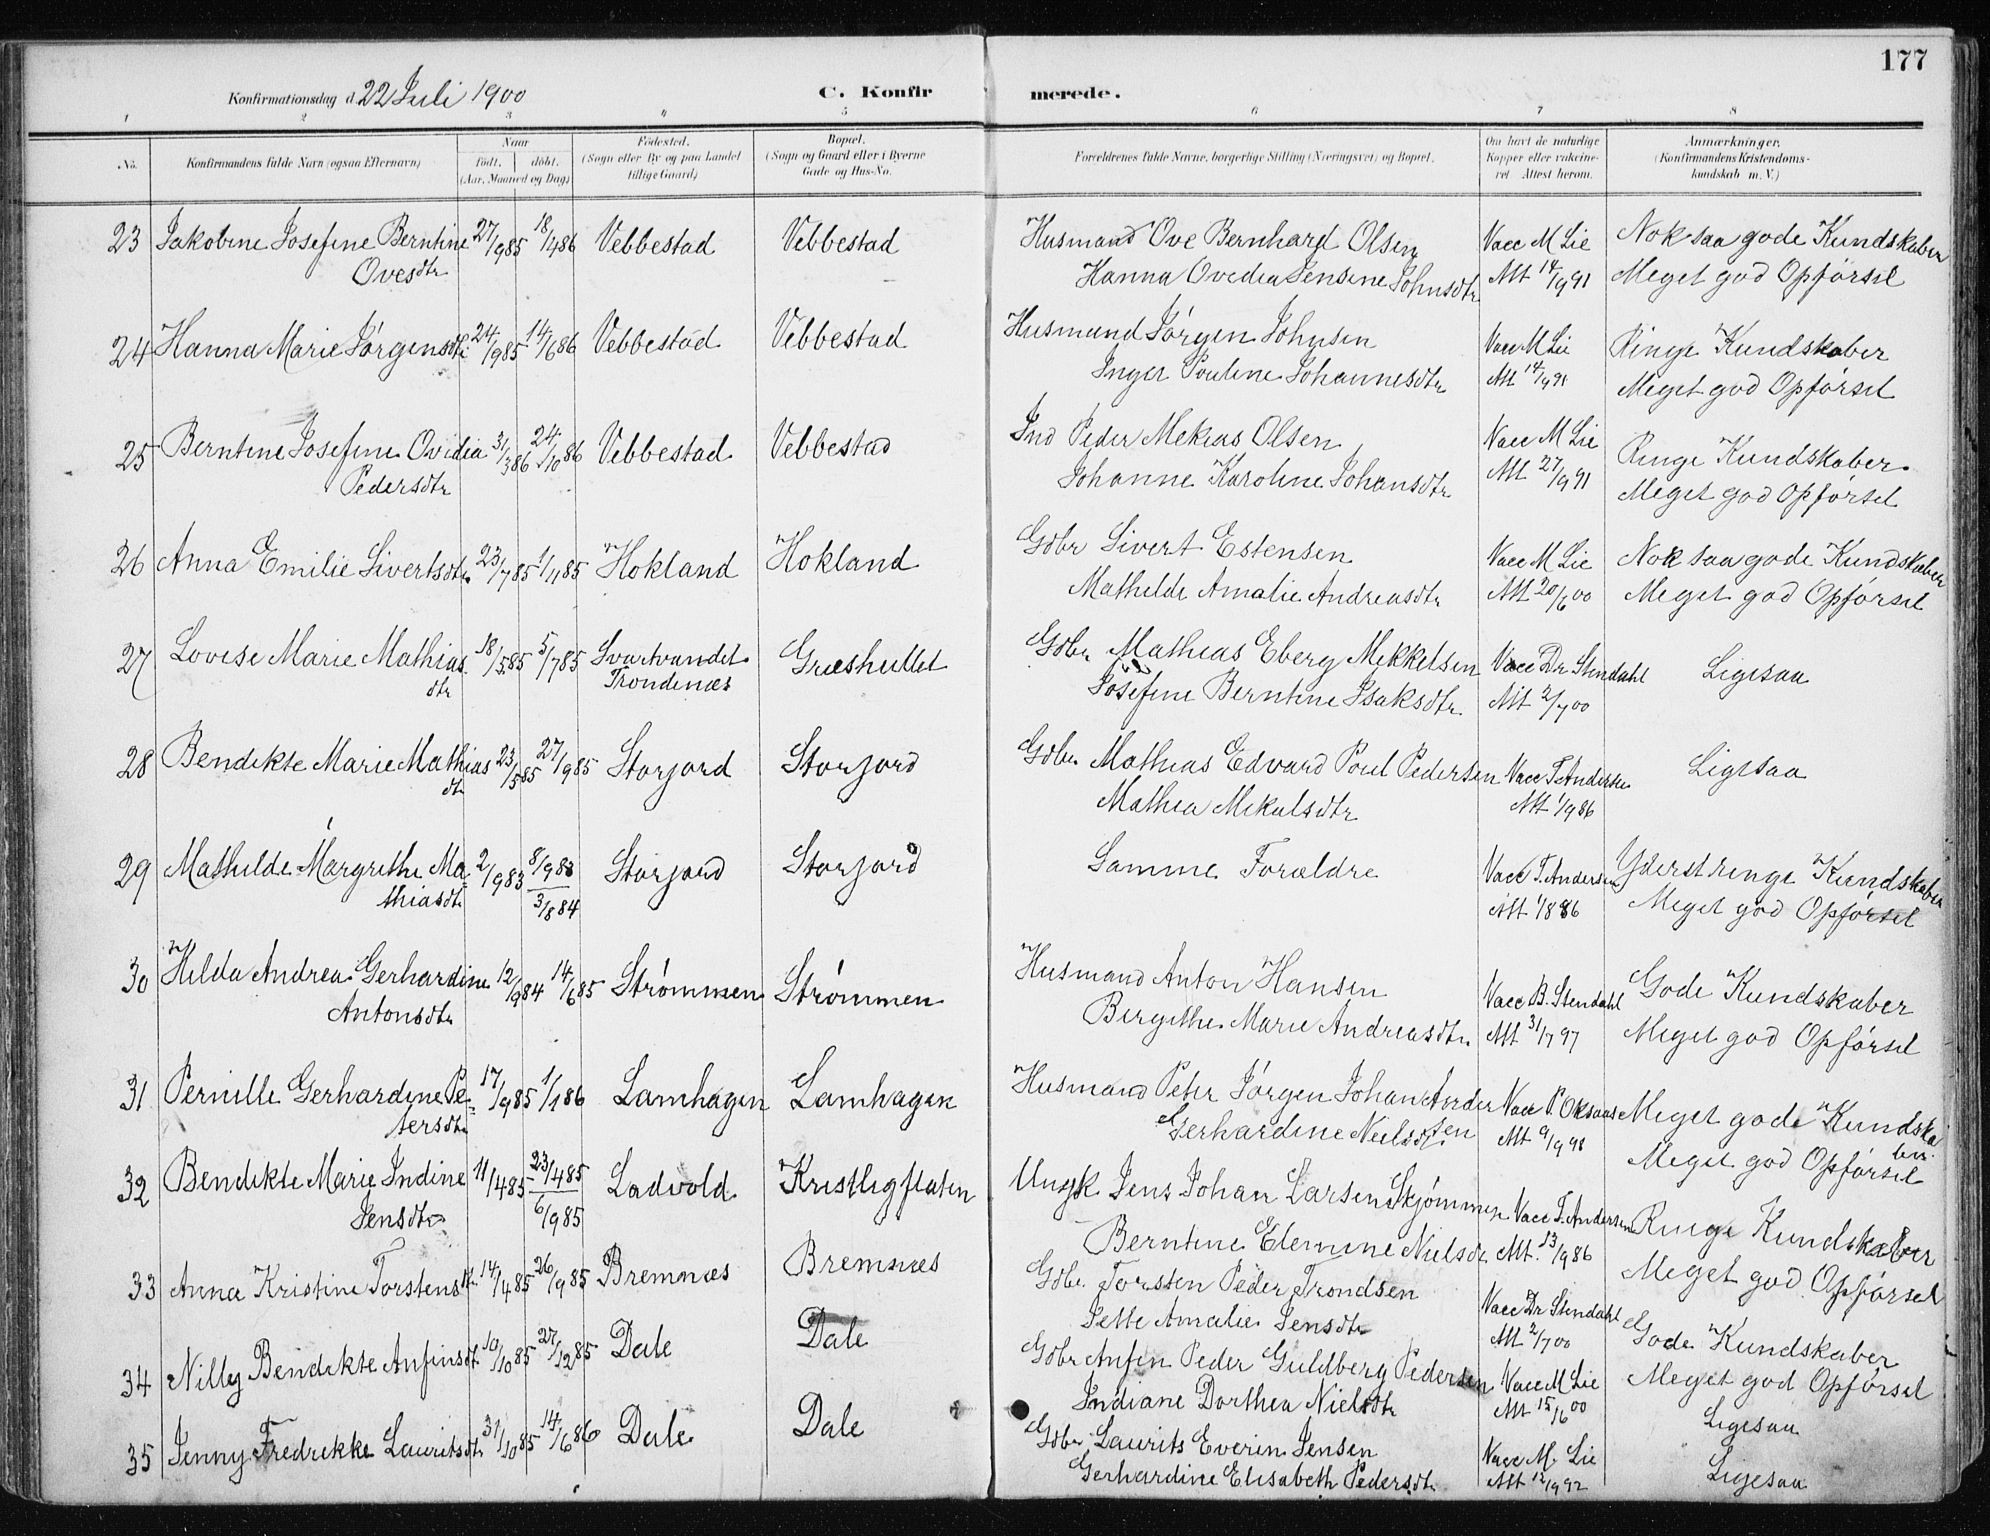 177
Konfirmationsdag d. 22 Juli 1900
C. Konfirmerede.
1 2 3 4 5 6 7 8
No.
Konfirmandens fulde Navn (ogsaa Efternavn)
Naar
født. døbt.
(Aar, Maaned og Dag)
Fødested.
(Sogn eller By og paa Landet
tillige Gaard)
Bopæl.
(Sogn og Gaard eller i Byerne
Gade og Hus-No.
Forældrenes fulde Navne, borgerlige Stilling (Næringsvei) og Bopæl.
Om havt de naturlige
Kopper eller vakcine-
ret Attest herom.
Anmærkninger.
(Konfirmandens Kristendoms-
kundskab m. V.)
23 Jakobine Josefine Berntine 27/9 85 18/4 86 Vebbestad Vebbestad Husmand Ove Bernhard Olsen Vacc M Lie Nok saa gode Kundskaber
Ovesdtr Hanna Ovedia Jensine Johnsdtr Att 14/9 91 Meget god Opførsel
24 Hanna Marie Jørgensdtr 24/9 85 14/6 86 Vebbestad Vebbestad Husmand Jørgen Johnsen Vacc M Lie Ringe Kundskaber
Inger Pouline Johannesdtr Att 14/9 91 Meget god Opførsel
25 Berntine Josefine Ovidia 31/3 86 24/10 86 Vebbestad Vebbestad Ind Peder Mekias Olsen Vacc M Lie Ringe Kundskaber
Pedersdtr Johanne Karoline Johansdtr Att 27/9 91 Meget god Opførsel
26 Anna Emilie Sivertsdtr 23/7 85 1/11 85 Hokland Hokland Gdbr Sivert Estensen Vacc M Lie Nok saa gode Kundskaber
Mathilde Amalie Andreasdtr Att 20/6 00 Meget god Opførsel
27 Lovise Marie Mathias 18/5 85 5/7 85 Svartvandet Græshullet Gdbr Mathias Eberg Mikkelsen Vacc Dr Stendahl Ligesaa
dtr Trondenæs Josefine Berntine Isaksdtr Att 2/7 00
28 Bendikte Marie Mathias 23/5 85 27/9 85 Storjord Storjord Gdbr Mathias Edvard Poul Pedersen Vacc T. Andersen Ligesaa
dtr Mathea Mikalsdtr Att 1/9 86
29 Mathilde Margrethe Ma 2/9 83 8/9 83 Storjord Storjord Samme Forældre Vacc T. Andersen Yderst ringe Kundskaber
thiasdtr 3/8 84 Att 1/8 86 Meget god Opførsel
30 Hilda Andrea Gerhardine 12/9 84 14/6 85 Strømmen Strømmen Husmand Anton Hansen Vacc B. Stendahl Gode Kundskaber
Antonsdtr Birgithe Marie Andreasdtr Att 31/7 97 Meget god Opførsel
31 Pernille Gerhardine Pe- 17/9 85 1/1 86 Lamhagen Lamhagen Husmand Peter Jørgen Johan Ander Vacc P. Oksaas Meget gode Kundska
tersdtr Gerhardine Nielsdtr sen Att 9/9 98 ber.
Meget god Opførsel
32 Bendikte Marie Indine 11/4 85 23/4 85 Ladvold Kristligflaten Ungk Jens Johan Larsen Skjømmen Vacc T. Andersen Ringe Kundskaber
Jensdtr 6/9 85 Berntine Elemine Nielsdtr Att. 13/9 86 Meget god Opførsel
33 Anna Kristine Torstensdtr 14/4 85 26/9 85 Bremnæs Bremnæs Gdbr Torsten Peder Trondsen Vacc Dr Stendahl Gode Kundskaber
Jette Amalie Jensdtr Att 2/7 00 Meget god Opførsel
34 Nilly Bendikte Anfinsdtr 10/10 85 27/12 85 Dale Dale Gdbr Anfin Peder Guldberg Pedersen Vacc M Lie Ligesaa
Indiane Dorthea Nielsdtr Att 15/6 00
35 Jenny Fredrikke Lauritsdtr 31/10 85 14/6 86 Dale Dale Gdbr Laurits Everin Jensen Vacc M. Lie Ligesaa
Gerhardine Elisabeth Pedersdtr Att 12/9 92